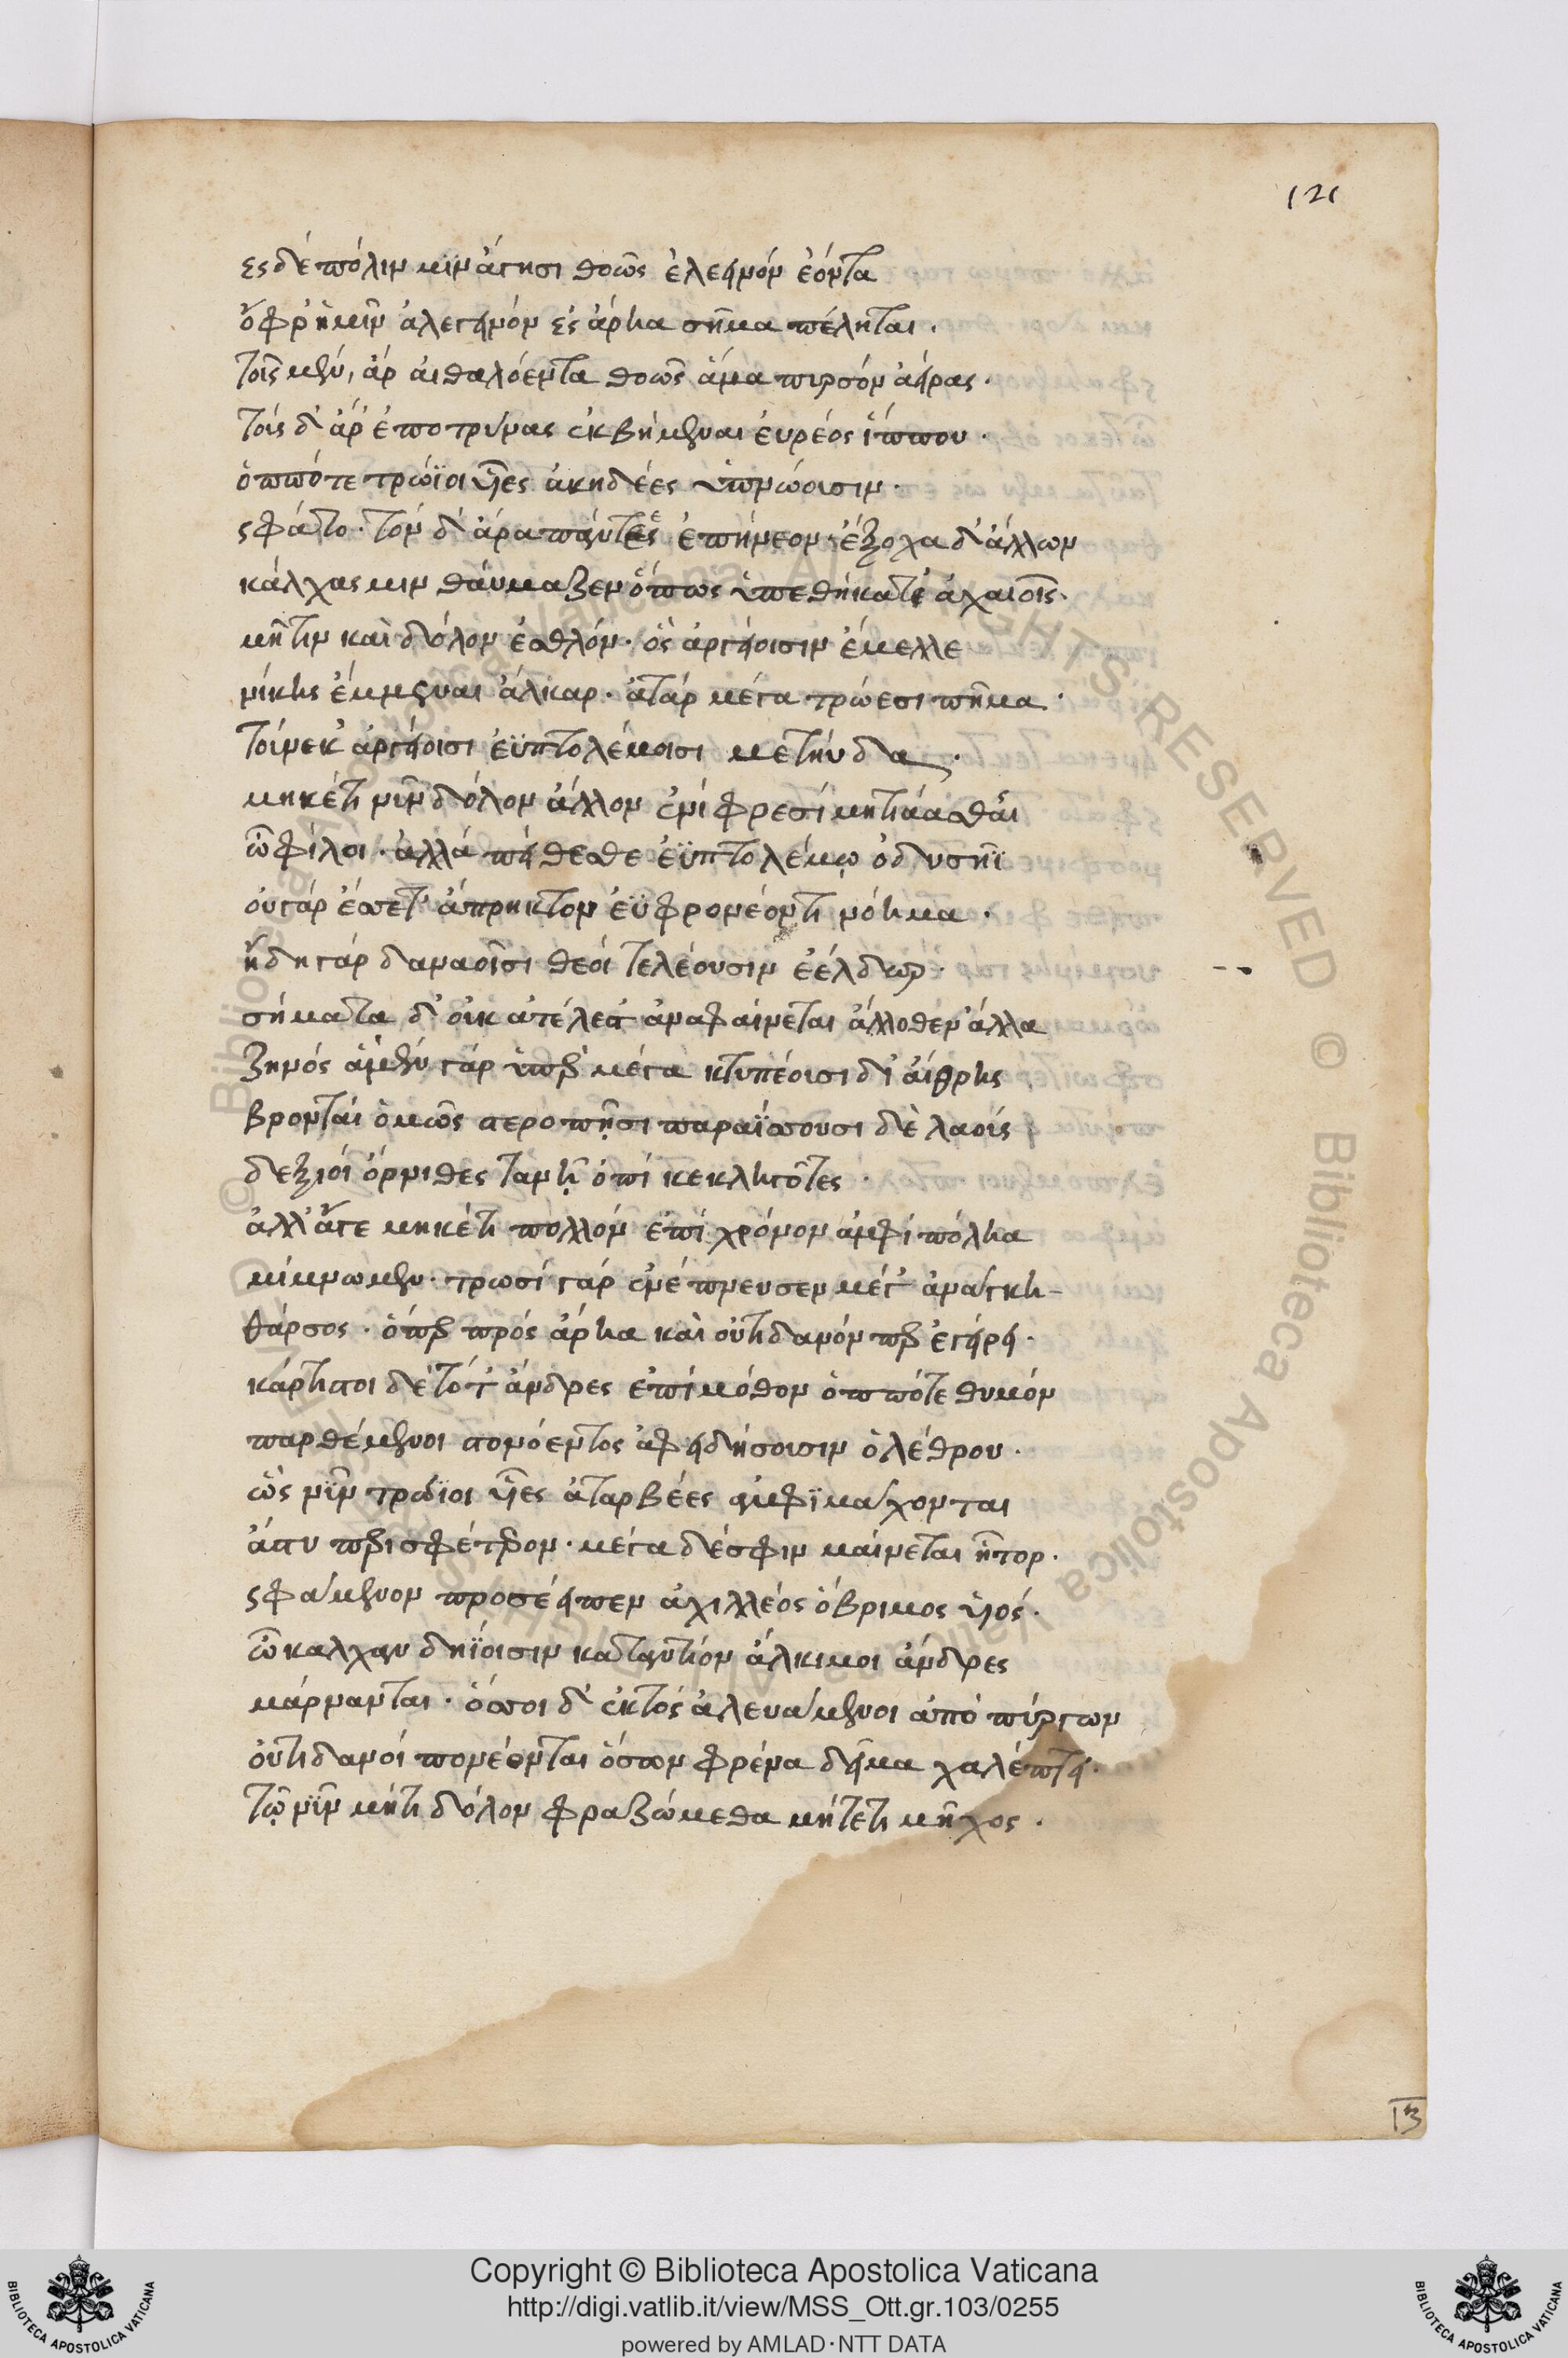 121
ες δὲ πόλιν μιν ἄγησι θοῶς ἐλεεινὸν ἐόντα
ὄφρ' ἡμῖν ἀλεγεινὸν ἐς ἄρηα σῆμα πέληται.
τοῖς μὲν, ἂρ αἰθαλόεντα θοῶς ἅμα πυρσὸν ἀείρας.
τοὺς δ' ἄρ' ἐποτρύνας ἐκβήμεναι εὐρέος ἵππου.
ὁππότε τρώϊοι υἷες ἀκηδέες ὑπνώουσιν.
ὣς φάτο. τὸν δ' ἄρα πάντες ἐπήνεον. ἔξοχα δ' ἄλλων
κάλχας μιν θαύμαζεν ὅπως ὑπεθήκατ' ἀχαιοῖς.
μῆτιν καὶ δόλον ἐσθλόν. ὃς ἀργείοισιν ἔμελλε
νίκης ἔμμεναι ἄλκαρ. ἀτὰρ μέγα τρώεσι πῆμα.
τοὔνεκ' ἀργείοισι ἐϋπτολέμοισι μετηύδα.
μηκέτι νῦν δόλον ἄλλον ἐνὶ φρεσὶ μητιάασθαι
ὦ φίλοι. ἀλλὰ πείθεσθε ἐϋπτολέμῳ ὀδυσῆϊ
οὐ γὰρ ἔσσετ' ἄπρηκτον ἐϋφρονέοντι νόημα.
ἤδη γὰρ δαναοῖσι θεοὶ τελέουσιν ἐέλδωρ.
σήματα δ' οὐκ ἀτέλεστ' ἀναφαίνεται ἄλλοθεν ἄλλα
ζηνὸς ἂμ μὲν γὰρ ὕπερ μέγα κτυπέουσι δι' αἴθρης
βρονταὶ ὁμῶς στεροπῇσι παραΐσσουσι δὲ λαοὺς
δεξιοὶ ὄρνιθες ταναῇ ὀπὶ κεκληγότες.
ἀλλ' ἄγε μηκέτι πολλὸν ἐπὶ χρόνον ἀμφὶ πόληα
μίμνωμεν. τρωσὶ γὰρ ἐνέπνευσεν μέγ' ἀνάγκη
θάρσος. ὅπερ πρὸς ἄρηα καὶ οὐτιδανόν περ ἐγείρει.
κάρτιστοι δὲ τότ' ἄνδρες ἐπὶ μόθον ὁππότε θυμὸν
παρθέμενοι στονόεντος ἀφειδήσουσιν ὀλέθρου.
ὡς νῦν τρώϊοι υἷες ἀταρβέες ἀμφιμάχονται
ἄστυ περὶ σφέτερον. μέγα δέ σφιν μαίνεται ἦτορ.
ὣς φάμενον προσέειπεν ἀχιλλέος ὄβριμος υἱός.
ὦ κάλχαν δηΐοισιν καταντίον ἄλκιμοι ἄνδρες
μάρνανται. ὅσσοι δ' ἐκτὸς ἀλευάμενοι ἀπὸ πύργων
οὐτιδανοὶ πονέονται ὅσων φρένα δεῖμα χαλέπτει.
τῷ νῦν μήτι δόλον φραζώμεθα μήτε τι μῆχος.
13
Copyright © Biblioteca Apostolica Vaticana
http://digi.vatlib.it/view/MSS_Ott.gr.103/0255
powered by AMLAD·NTT DATA